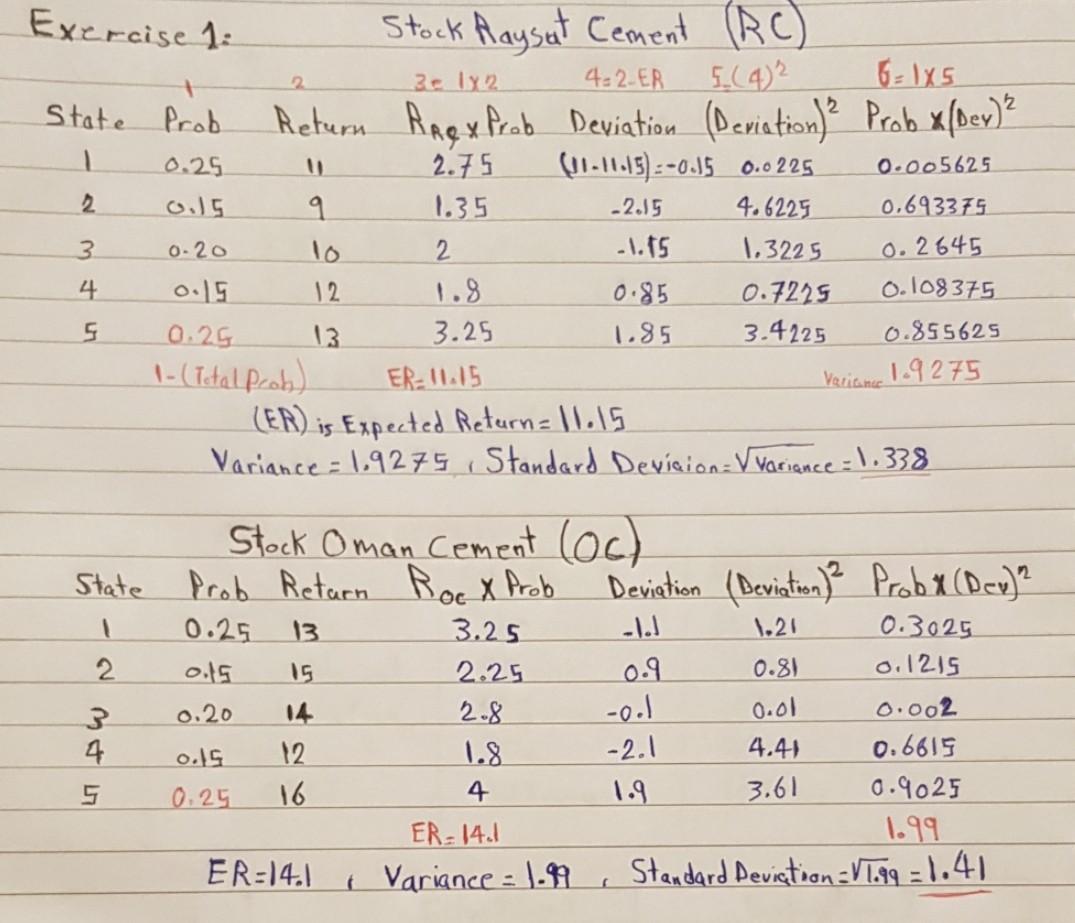 Exercise 1: Stock Raysut Cement (RC)
1 2 3= 1x2 4=2-ER 5=(4)² 6=1x5
State Prob Return R_RC x Prob Deviation (Deviation)² Prob x(Dev)²
1 0.25 11 2.75 (11-11.15)=-0.15 0.0225 0.005625
2 0.15 9 1.35 -2.15 4.6225 0.693375
3 0.20 10 2 -1.15 1.3225 0.2645
4 0.15 12 1.8 0.85 0.7225 0.108375
5 0.25 13 3.25 1.85 3.4225 0.855625
1-(Total Prob) ER=11.15 Variance 1.9275
(ER) is Expected Return=11.15
Variance =1.9275 , Standard Deviaion=√Variance =1.338
Stock Oman Cement (OC)
State Prob Return Roc x Prob Deviation (Deviation)² Prob x (Dev)²
1 0.25 13 3.25 -1.1 1.21 0.3025
2 0.15 15 2.25 0.9 0.81 0.1215
3 0.20 14 2.8 -0.1 0.01 0.002
4 0.15 12 1.8 -2.1 4.41 0.6615
5 0.25 16 4 1.9 3.61 0.9025
ER=14.1 1.99
ER=14.1 , Variance = 1.99 , Standard Deviation=√1.99 =1.41